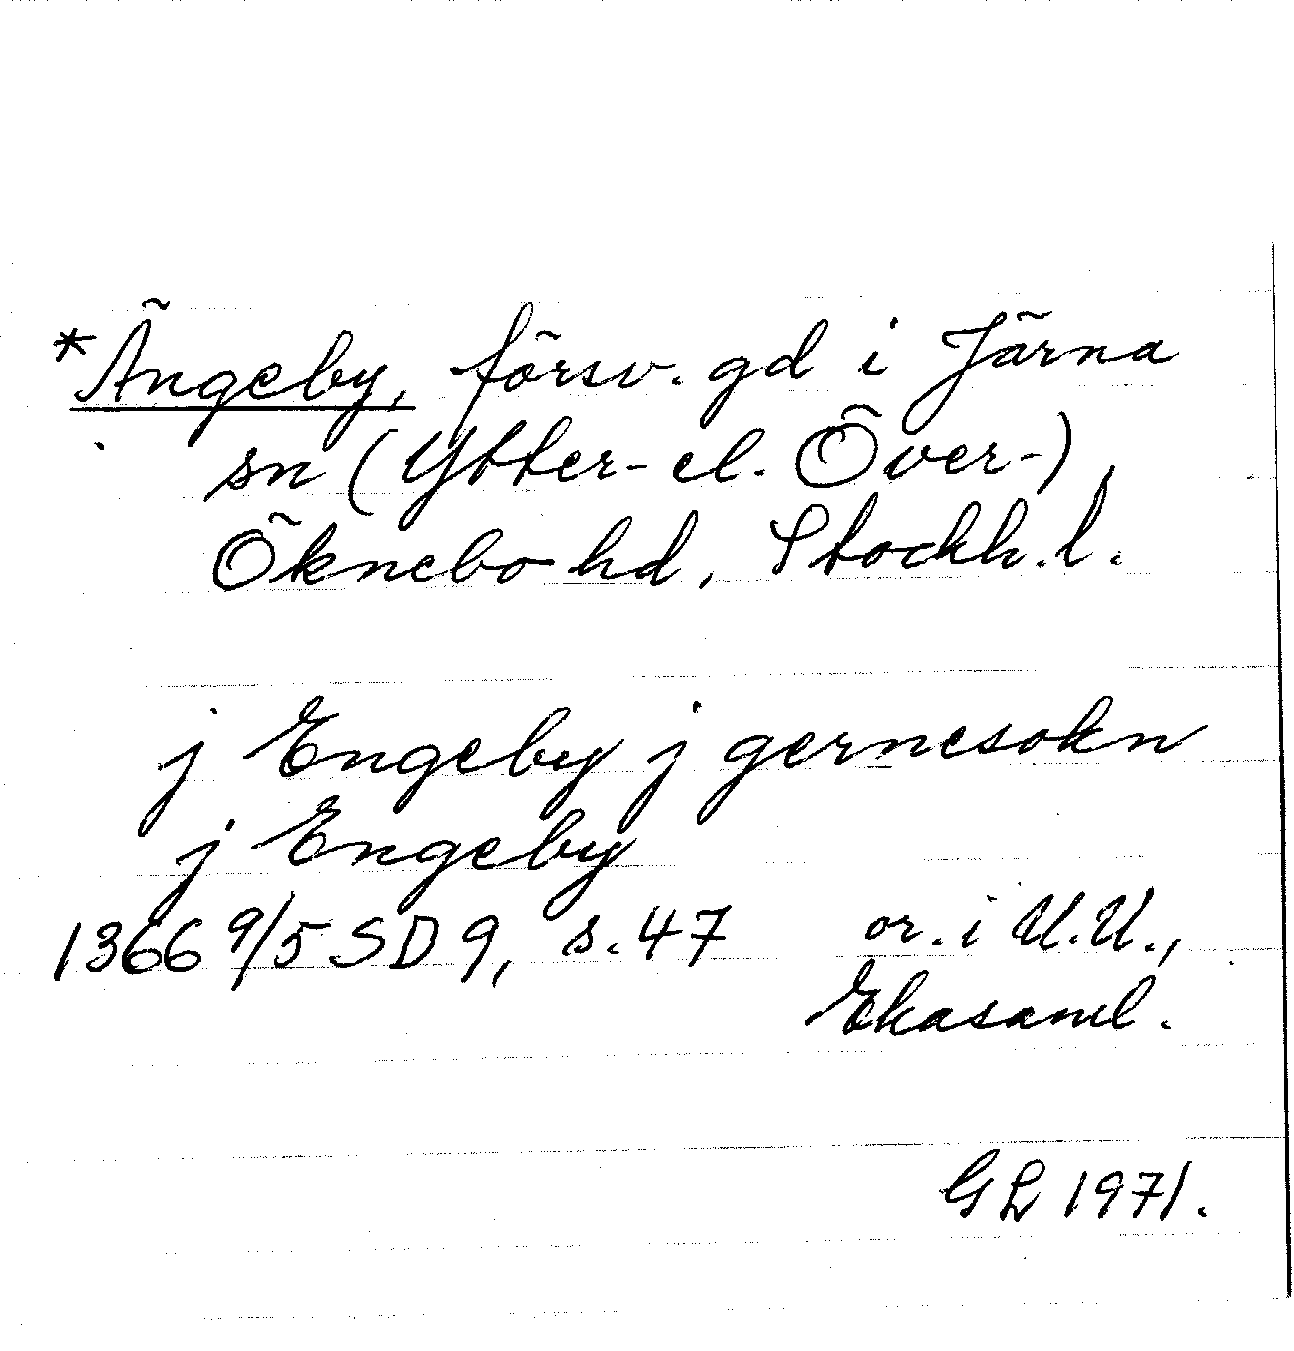 *Ängeby, försv. gd i Järna
sn (Ytter- el. Över-),
Öknebo hd, Stockh. l.
j Engeby j gernesokn
j Engeby
1366 9/5 SD 9, s. 47 or. i U.U.,
Ekasaml.
GL 1971.